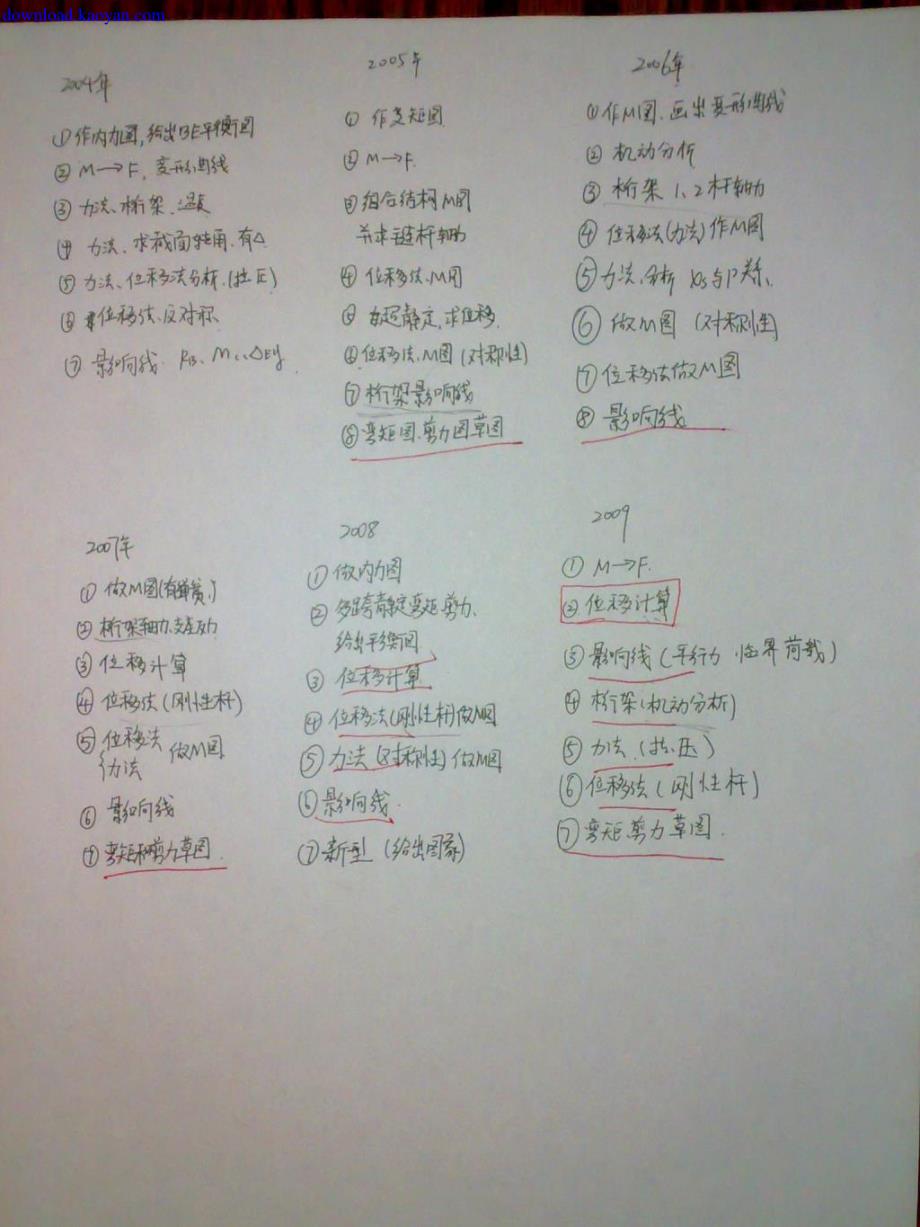 download.kaoyan.com
2004年
①作内力图,给出BE平衡图
② M→F, 变形曲线
③ 力法、桁架、温度
④ 力法、求截面转角、有△
⑤ 力法、位移法分析.(拉压)
⑥ 位移法、反对称
⑦ 影响线.
2005年
① 作弯矩图
② M→F.
③ 组合结构M图
并求链杆轴力
④ 位移法、M图
⑤ 超静定,求位移.
⑥ 位移法、M图(对称性)
⑦ 桁架影响线
⑧ 弯矩图、剪力图草图
2006年
① 作M图、画出变形曲线
② 机动分析
③ 桁架 1、2杆轴力
④ 位移法(力法)作M图
⑤ 力法、分析 与P关系、
⑥ 做M图 (对称性)
⑦ 位移法做M图
⑧ 影响线
2007年
① 做M图(有弹簧、)
② 桁架轴力、支座反力
③ 位移计算
④ 位移法(刚性杆)
⑤ 位移法 做M图
力法
⑥ 影响线
⑦ 弯矩和剪力草图.
2008
① 做内力图
② 多跨静定弯矩、剪力、
给出平衡图
③ 位移计算
④ 位移法(刚性杆)做M图
⑤ 力法(对称性)做M图
⑥ 影响线.
⑦ 新型 (给出图象)
2009
① M→F.
② 位移计算
③ 影响线(平行力、临界荷载)
④ 桁架(机动分析)
⑤ 力法(拉、压)
⑥ 位移法(刚性杆)
⑦ 弯矩、剪力草图.